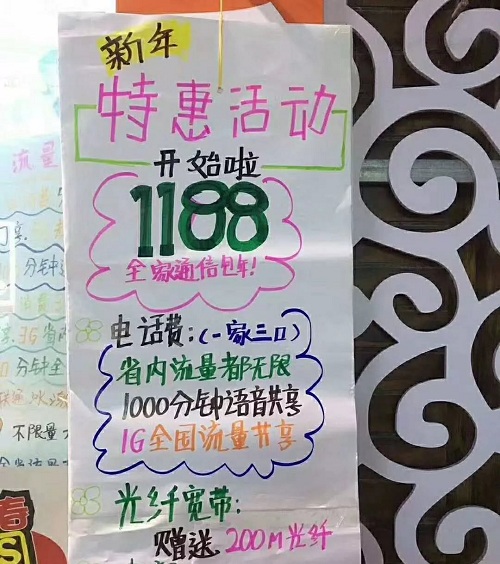 新年
特惠活动
开始啦
1188
全家通信包年!
电话费:(一家三口)
省内流量都无限
1000分钟语音共享
1G全国流量共享
光纤宽带:
赠送200M光纤
流量
分钟
3G省内
分钟全
不限量
春